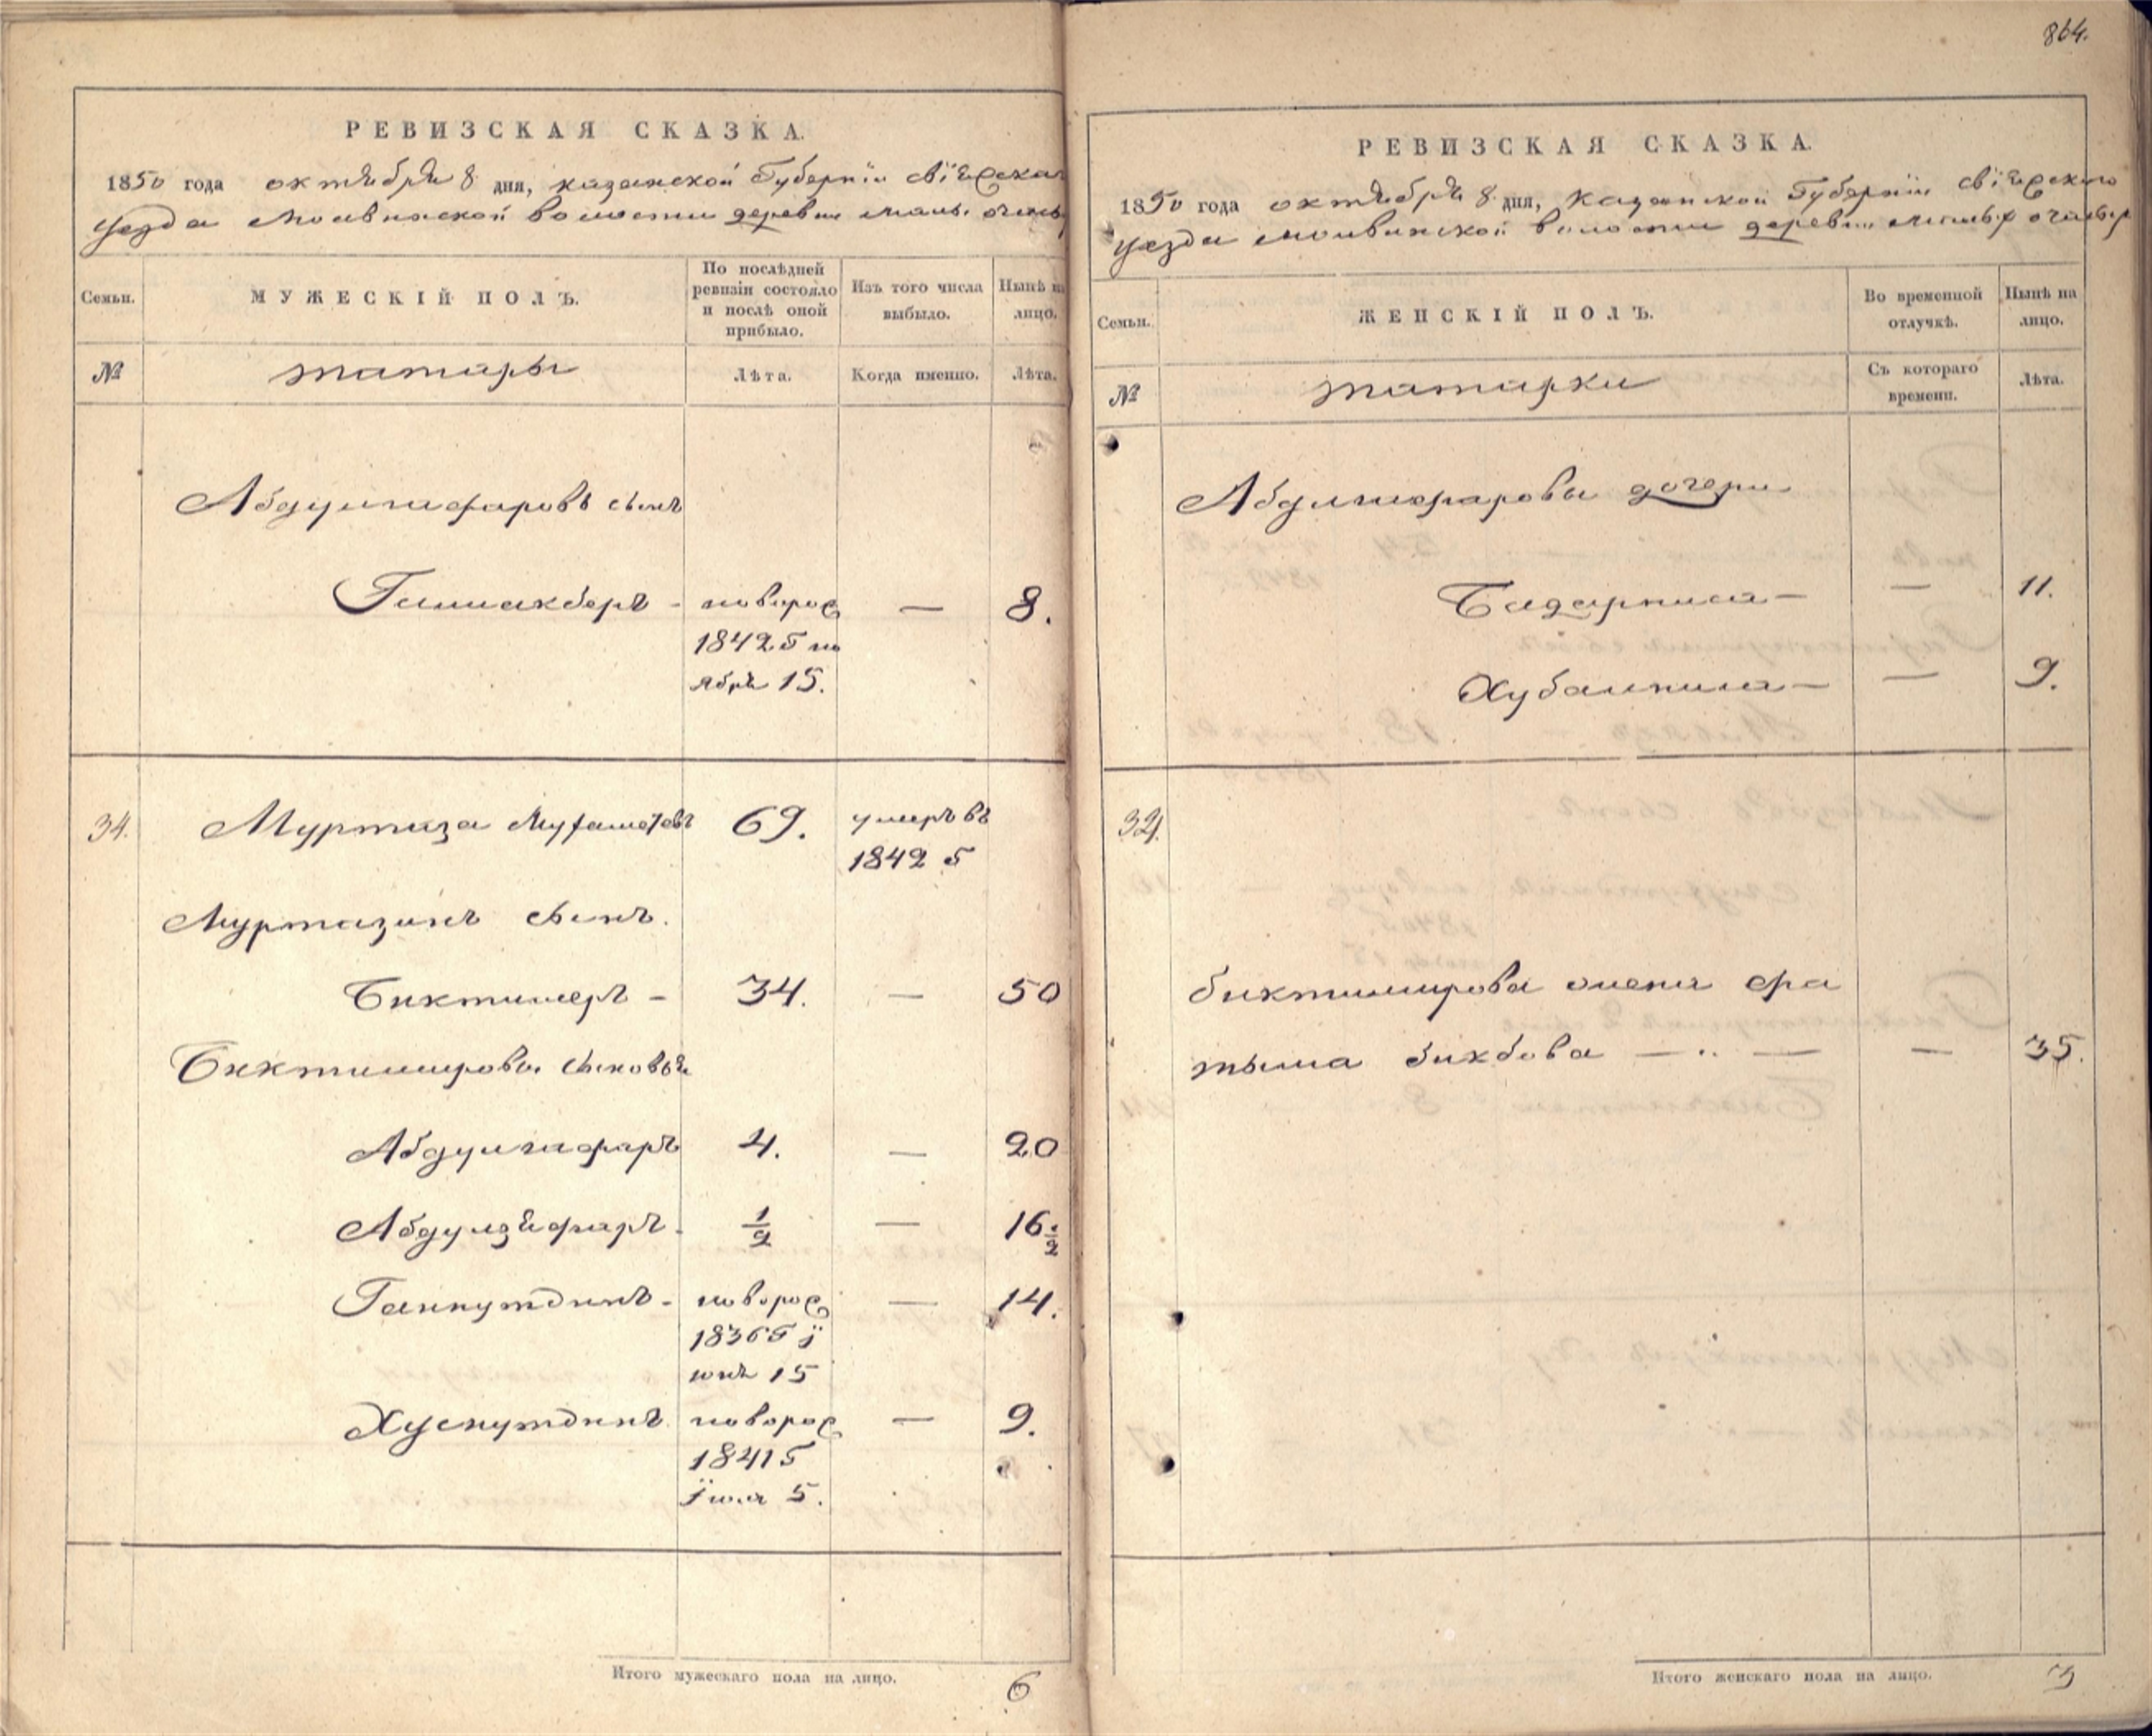 864.
РЕВИЗСКАЯ СКАЗКА.
1850 года октября 8 дня, казанской Губерніи свіяжскаго
уезда Молвинской волости деревни малы. очасы
Семьи.
МУЖЕСКІЙ ПОЛЪ.
По послѣдней ревизіи состояло и послѣ оной прибыло.
Изъ того числа выбыло.
Нынѣ на лицо.
№
татары
Лѣта.
Когда именно.
Лѣта.
Абдулгафаровъ сынъ
Галиакберъ - новорож — 8.
1842 Г но
ябрь 15.
34. Муртаза Мухаметевъ 69. умеръ въ
1842 Г
Муртазинъ сынъ.
Биктимеръ - 34. — 50
Биктимирова сыновья
Абдулгафаръ 4. — 20
Абдулзяфаръ - 1/2 — 16 1/2
Гайнутдинъ - новорож — 14.
1836 Г і
юнь 15
Хуснутдинъ новорож — 9.
1841 Г
Іюля 5.
Итого мужескаго пола на лицо. 6
РЕВИЗСКАЯ СКАЗКА.
1850 года октября 8 дня, Казанской Губерніи свіяжскаго
уезда молвинской волости деревни малыхъ
Семьи.
ЖЕНСКІЙ ПОЛЪ.
Во временной отлучкѣ.
Нынѣ на лицо.
№
татарки
Съ котораго времени.
Лѣта.
Абдлгафарова дочери
Бадарниса — — 11.
Хубалниса — — 9.
34.
биктимирова жена фа
тыма бикбова — .. — — 35.
Итого женскаго пола на лицо. 3